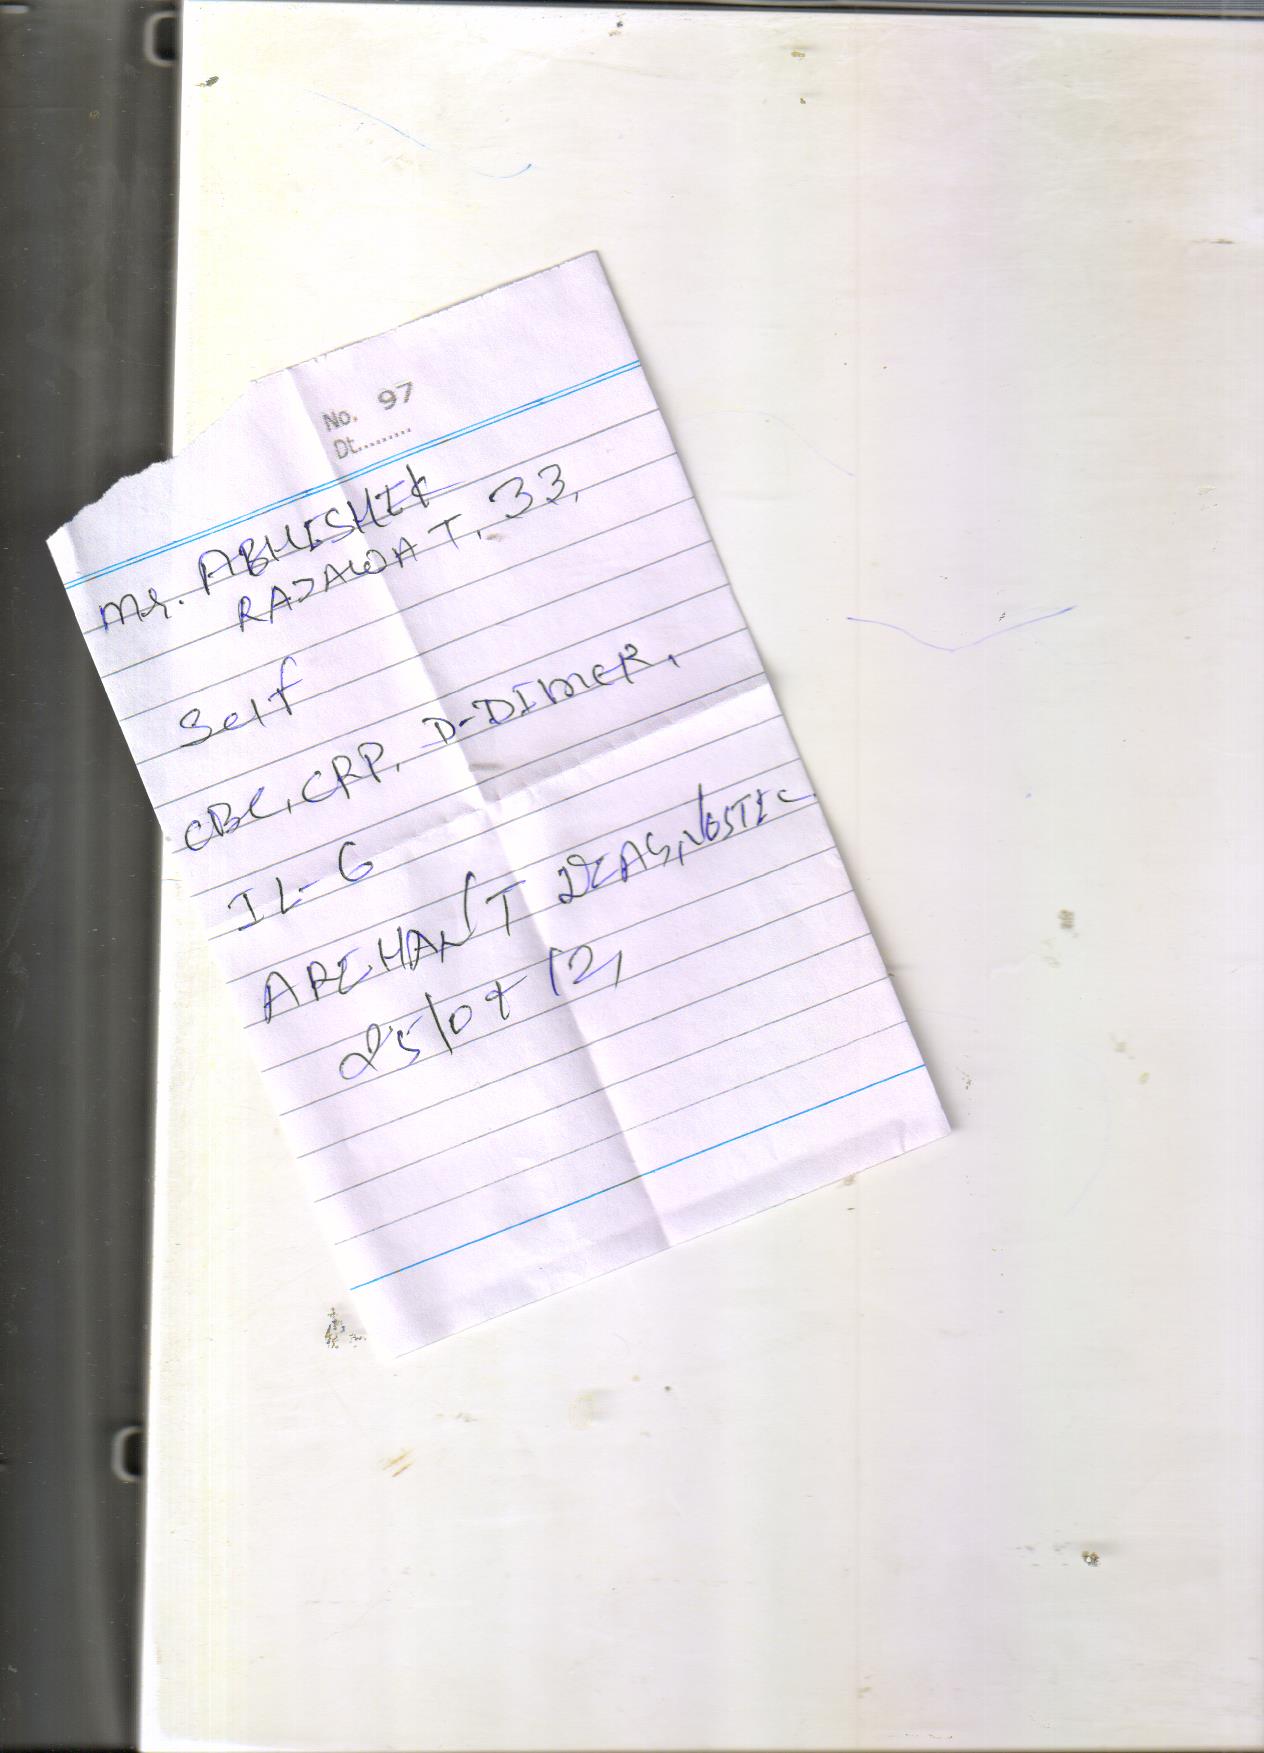 No. 97
Dt.........
Mr. ABHISHEK
RAJAWAT, 33,
Self
CBC, CRP, D-DIMER,
IL-6
ARIHANT DIAGNOSTIC
25/04/21